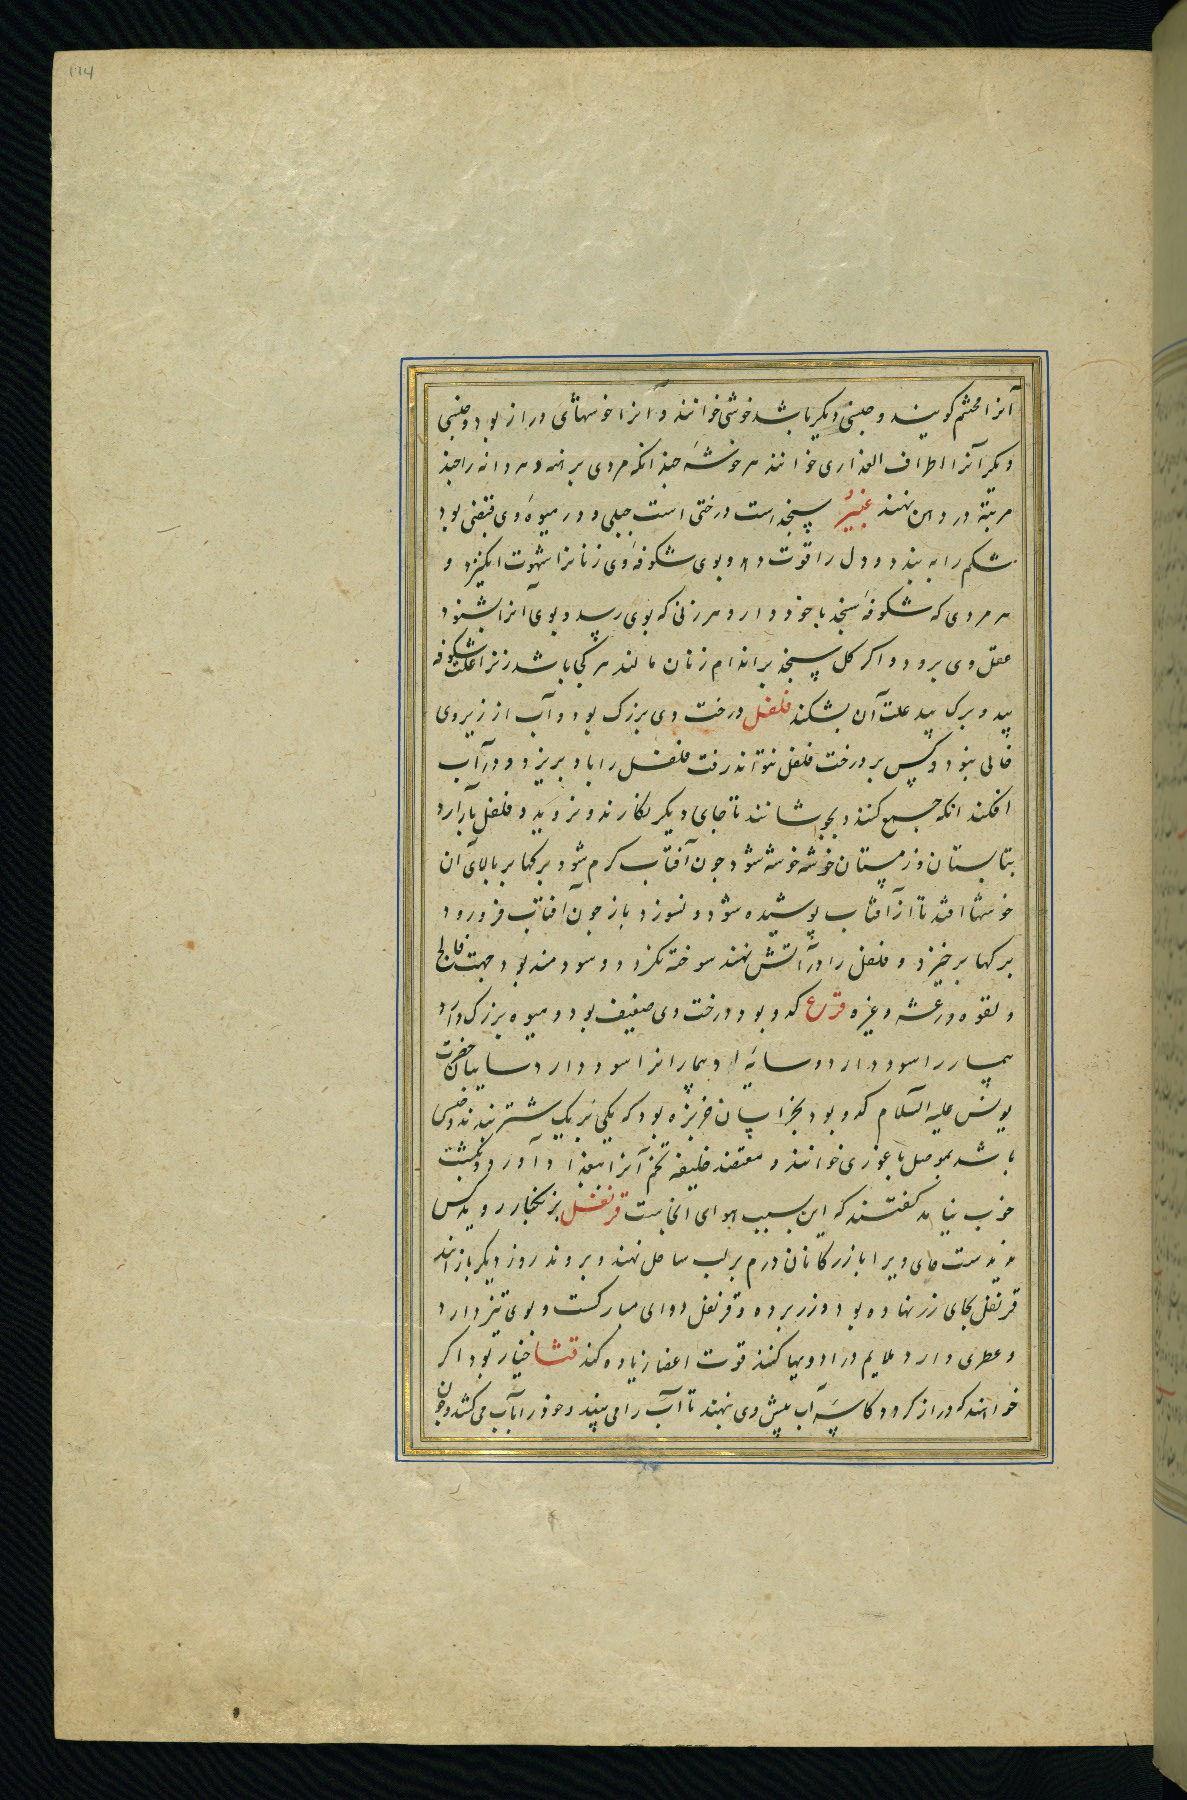 ۱۱۴
آنرا محتثم کویند و جنسی دیکر باشد خوشی خوانند و آنرا خوشهای دراز بود و جنسی
دیکر آنرا اطراف العذاری خوانند هر خوشهٔ چندانکه مردی بر نهد و هر دانه را چند
مرتبة در دهن نهند غبیرا سنجد است درختی است جبلی و در میوهٔ وی قبضی بود
شکم را به بندد و دل را قوت دهد و بوی شکوفهٔ وی زنانرا شهوت انکیزد و
هر مردی که شکوفهٔ سنجد با خود دارد و هر زنی که بوی رسد و بوی آنرا بشنود
عقل وی برود و اکر کل سنجد بر اندام زنان مالند هر کجا باشد زنرا علت شکوفه
بید و برک بید علت آن بشکند فلفل درخت وی بزرک بود و آب از زیر وی
خالی نبود و کس بر درخت فلفل نتواند رفت فلفل را باد بریزد و در آب
افکند انکه جمع کنند و بجوشانند تا جای دیکر نکارند و نروید و فلفل بار آرد
بتابستان و زمستان خوشه خوشه شود چون آفتاب کرم شود برکها بر بالای آن
خوشها افتد تا از آفتاب پوشیده شود و نسوزد باز چون آفتاب فرو رود
برکها برخیزد و فلفل را در آتش نهند سوخته نکردد و سودمند بود جهت فالج
و لقوه و رعشه و غیره قرع کدو بود درخت وی ضعیف بود و میوه بزرک دارد
بیمار را سود دارد و سایهٔ او بیمارانرا سود دارد سایبان حضرت
یونس علیه السلام کدو بود بخراسان خربزه بود که یکی نر یک شتر بندند و جنسی
باشد بموصل باعوزی خوانند و معتضد خلیفه تخم آنرا ببغداد آورد و بکشت
خوب نیامد کفتند که این سبب هوای انجاست قرنفل بزنکبار روید کس
ندیدست جای ویرا بازرکانان درم بر لب ساحل نهند و بروند روز دیکر باز آیند
قرنفل بجای زر نهاده بود و زر برده و قرنفل دوای مبارکست و بوی تیز دارد
و عطری دارد ملایم در ادویها کنند قوت اعضا زیاده کند قثا خیار بود اکر
خواهند که دراز کردد کاسهٔ آب پیش وی نهند تا آب را می بیند و خود را بآب می کشد و چون